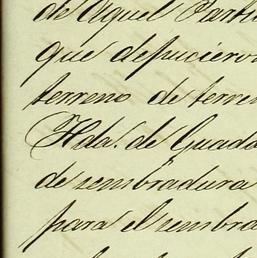 de aquel Parti
que depusieron
terreno de terre
Hda. de Guada
de sembradura
para el sembra